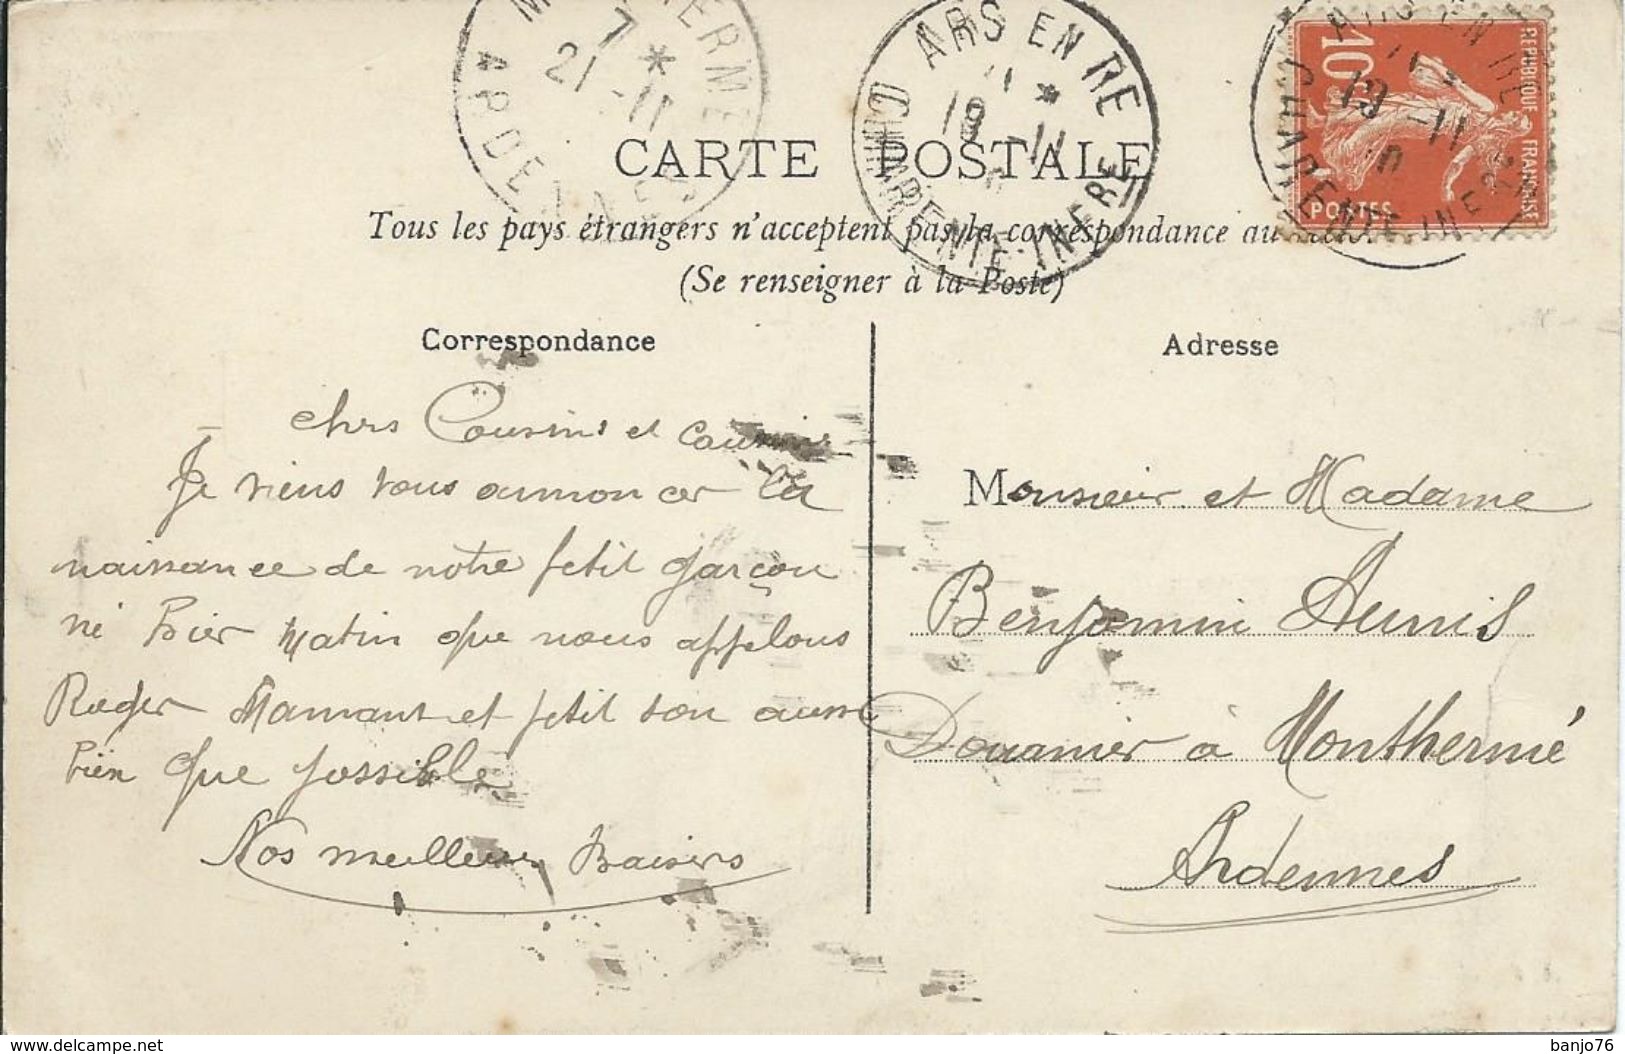 7 *
21 -11
ARDENNES
ARS EN RE
19 -11
CHARENTE INFRE
ARS EN RE
11
19 -11
CHARENTE INFRE
REPUBLIQUE FRANÇAISE
10c
POSTES
CARTE POSTALE
Tous les pays étrangers n'acceptent pas la correspondance au
(Se renseigner à la Poste)
Correspondance
chrs Cousins et
Je viens vous annoncer la
naissance de notre petit garçon
né hier Matin que nous appelons
Roger Maman et petit son aussi
bien que possible
Nos meilleurs Baisers
Adresse
Monsieur et Madame
Benjamin Aunis
Douanier à Monthermé
Ardennes
delcampe.net
banjo76